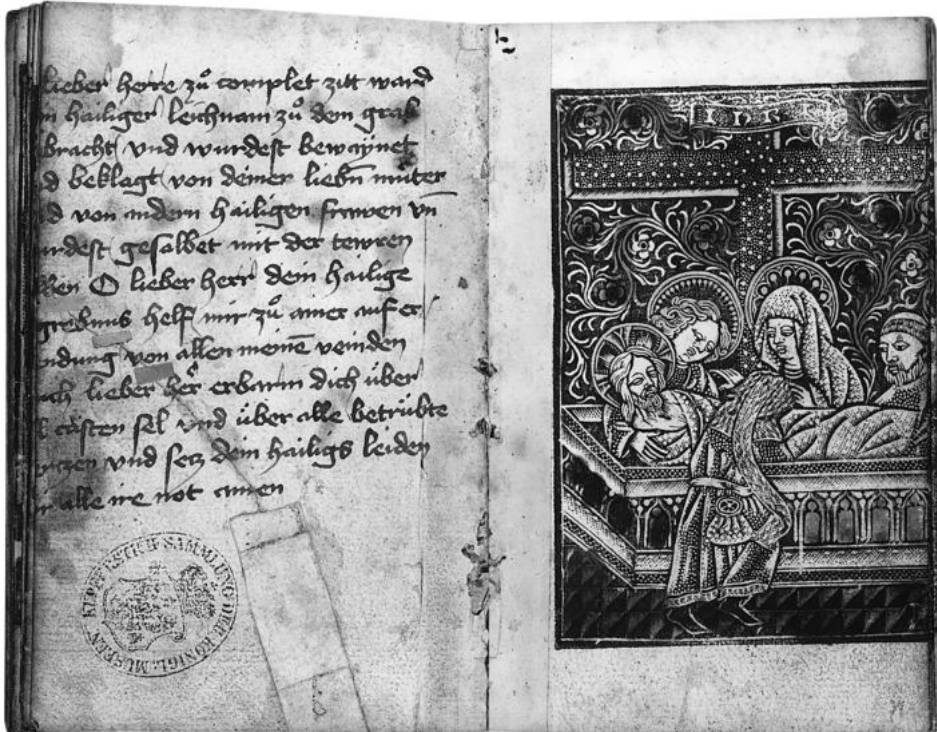 lieber herre zů complet zitt ward
hailiger leichnam zů dem grab
bracht vnd wurdest bewaynet
beklagt von deiner liebn můter
von andern hailigen frawen vn̄
gesalbet mit der tewren
O lieber herr dein hailige
helf mir zů ainer auf er
von allen meinē veinden
lieber her erbarm dich über
sel vnd über alle betrübte
vnd secz dein hailigs leiden
alle ire not amen
KUPFERSTICH SAMMLUNG DER KÖNIGL. MUSEEN